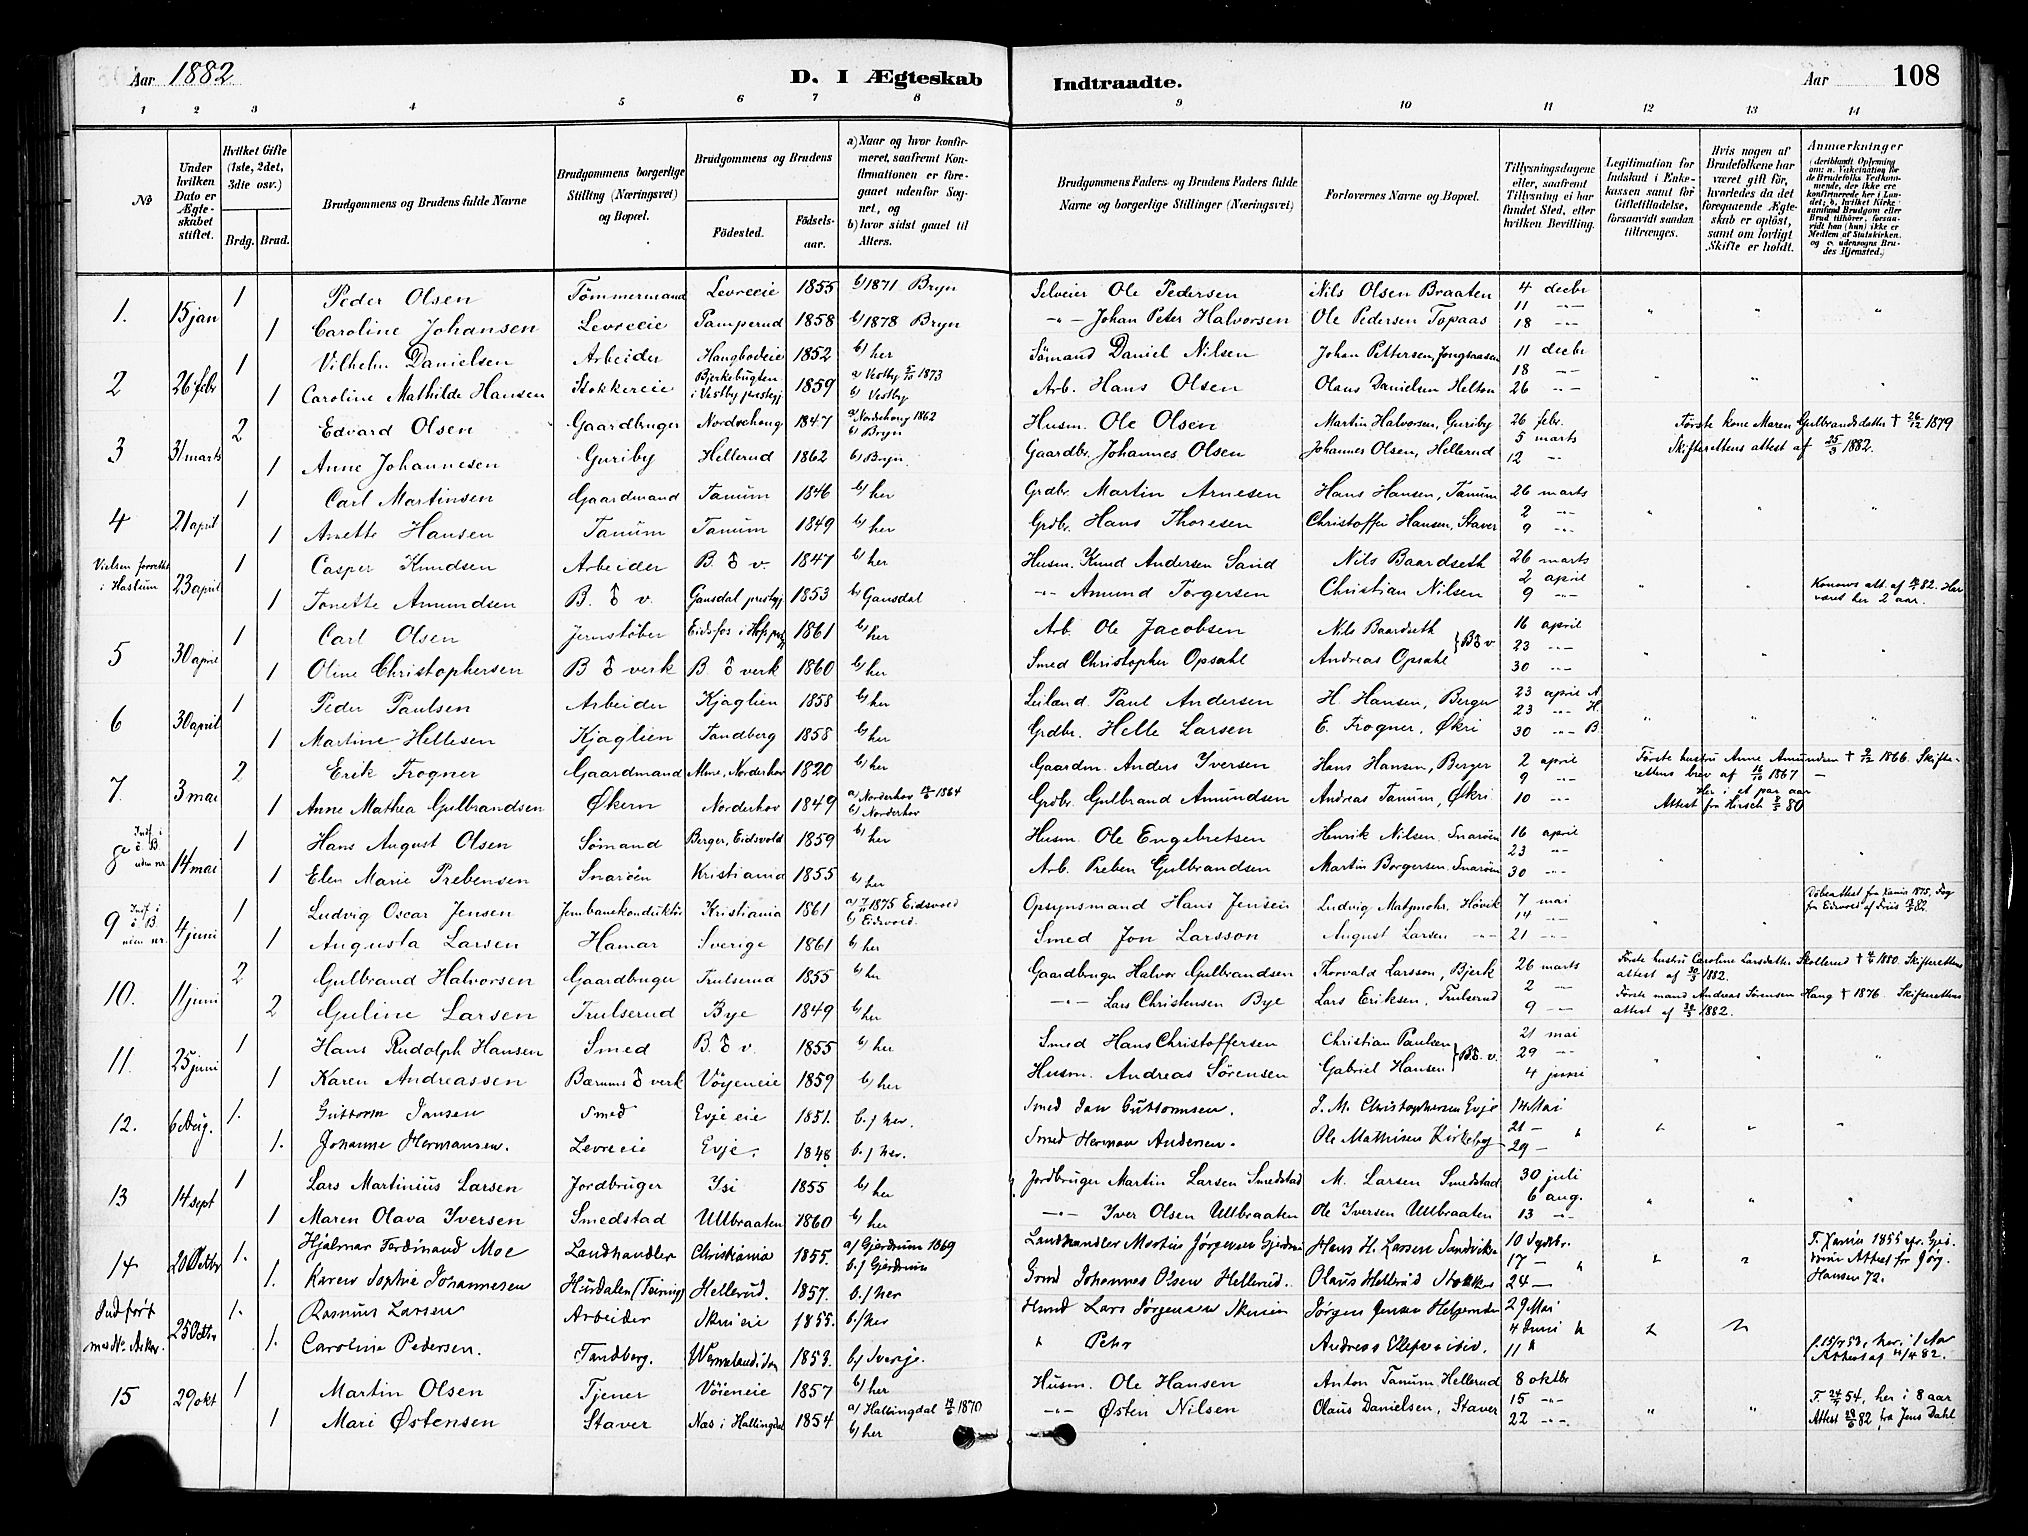 Aar 1882
D. I Ægteskab Indtraadte.
Aar
108
1 2 3 4 5 6 7 8 9 10 11 12 13 14
No
Under hvilken Dato er Ægteskabet stiftet.
Hvilket Gifte (1ste, 2det, 3die osv.)
Brdg. Brud.
Brudgommens og Brudens fulde Navne
Brudgommens borgerlige Stilling (Næringsvei) og Bopæl.
Brudgommens og Brudens
Fødested.
Fødselsaar.
a) Naar og hvor konfirmeret, saafremt Konfirmationen er foregaaet udenfor Sognet, og
b) hvor sidst gaaet til Alters.
Brudgommens Faders og Brudens Faders fulde Navne og borgerlige Stillinger (Næringsvei)
Forlovernes Navne og Bopæl.
Tillysningsdagene eller, saafremt Tillysning ei har fundet Sted, efter hvilken Bevilling.
Legitimation for Indskud i Enkekassen samt for Giftetilladelse, forsaavidt saadan tiltrænges.
Hvis nogen af Brudefolkene har været gift før, hvorledes da det foregaaende Ægteskab er opløst, samt om lovligt Skifte er holdt.
Anmerkninger (deriblandt Oplysning om: a. Vaccination for de Brudefolks Vedkommende, der ikke ere konfirmerede her i Landet; b. hvilket Kirkesamfund Brudgom eller Brud tilhører, forsaavidt han (hun) ikke er Medlem af Statskirken, og c. udensogns Brudes Hjemsted.)
1. 15 jan 1 Peder Olsen Tømmermand Levreeie 1855 b/ 1871 Bryn Selveier Ole Pedersen Nils Olsen Braaten 4 decbr
11 "
1 Caroline Johansen Levreeie Tamperud 1858 b/ 1878 Bryn "- Johan Peter Halvorsen Ole Pedersen Topaas 18 "
2 26 febr 1 Vilhelm Danielsen Arbeider Haugbodeie 1852 b/ her Sømand Daniel Nilsen Johan Pettersen, Jongsaasen 11 decbr
18 "
1 Caroline Mathilde Hansen Stokkereie Bjerkebugten i Vestby prestgj 1859 a/ Vestby 5/10 1873 b/ Vestby Arb. Hans Olsen Olaus Danielsen Helton 26 "
3 31 marts 2 Edvard Olsen Gaardbruger Nordrehaug 1847 a/ Nordrehaug 1862 b/ Bryn Husm. Ole Olsen Martin Halvorsen, Guriby 26 febr. Første kone Maren Gulbrandsdatter † 26/12 1879
5 marts
1 Anne Johannesen Guriby Hellerud 1862 b/ Bryn Gaardbr. Johannes Olsen Johannes Olsen, Hellerud 12 " Skifterettens attest af 25/3 1882.
4 21 april 1 Carl Martinsen Gaardmand Tanum 1846 b/ her Grdbr. Martin Arnesen Hans Hansen, Tanum 26 marts
2 "
1 Anette Hansen Tanum Tanum 1849 b/ her Grdbr. Hans Thoresen Christoffer Hansen, Staver 9 "
Vielsen forrettet i Haslum 23 april 1 Casper Knudsen Arbeider B. ♂ v. 1847 b/ her Husm. Knud Andersen Sand Nils Baardseth 26 marts
2 april
1 Tonette Amundsen B. ♂ v. Gausdal prestgj 1853 b/ Gausdal "- Amund Torgersen Christian Nilsen 9 " Har været her 2 aar.
5 30 april 1 Carl Olsen Jernstøber Eidsfos i Hofs 1861 b/ her Arb. Ole Jacobsen Nils Baardseth } B ♂ v 16 april
23 "
1 Oline Christophersen B ♂ verk B ♂ verk 1860 b/ her Smed Christopher Opsahl Andreas Opsahl 30 "
6 30 april 1 Peder Paulsen Arbeider Kjaglien 1858 b/ her Leilænd. Paul Andersen H. Hansen, Berger 23 april A.
23 " H.
1 Martine Hellesen Kjaglien Tandberg 1858 b/ her Grdbr. Helle Larsen E. Frogner, Økri 30 " B.
7. 3 mai 2 Erik Frogner Gaardmand Norderhov 1820 b/ her Gaardm. Anders Iversen Hans Hansen, Berger 2 april Første hustru Anne Amundsen † 1866. Skifterettens brev af 16/10 1867 —
9 "
1 Anne Mathea Gulbrandsen Økern Norderhov 1849 a/ Norderhov 1864 b/ Norderhov Grdbr. Gulbrand Amundsen Andreas Tanum, Økri 10 " Her i et par aar Attest fra Hirsch 80
14 mai 1 Hans August Olsen Sømand Berger, Eidsvold 1859 b/ her Husm. Ole Engebretsen Henrik Nilsen, Snarøen 16 april
23 "
1 Elen Marie Prebensen Snarøen Kristiania 1855 b/ her Arb. Preben Gulbrandsen Martin Borgersen, Snarøen 30 "
9 4 juni 1 Ludvig Oscar Jensen Jernbanekonduktør Kristiania 1861 a/ 1875 Eidsvold b/ Eidsvold Opsynsmand Hans Jensen Ludvig Matzmohr, Høvik 7 mai
14 "
1 Augusta Larsen Hamar Sverige 1861 b/ her Smed Jon Larsson August Larsen " 21 "
10. 11 juni 2 Gulbrand Halvorsen Gaardbruger Trulserud 1855 b/ her Gaardbruger Halvor Gulbrandsen Thorvald Larsson, Bjerk 26 marts Første hustru Caroline Larsdatter Skollerud † 1880. Skifterettens attest af 30/3 1882.
2 "
2 Guline Larsen Trulserud Bye 1849 b/ her "- Lars Christensen Bye Lars Eriksen, Trulserud 9 " Første mand Andreas Sørensen Haug † 1876. Skifterettens attest af 30/3 1882.
11. 25 juni 1 Hans Rudolph Hansen Smed B. ♂ v. 1855 b/ her Smed Hans Christoffersen Christian Paulsen } B ♂. v. 21 mai
29 "
1 Karen Andreassen Bærums ♂ verk Vøyeneie 1859 b/ her Husm. Andreas Sørensen Gabriel Hansen 4 juni
12. 6 Aug. 1. Guttorm Jansen Smed Evje eie 1851. b./ her. Smed Jan Guttormsen. J. M. Christophersen Evje 14 Mai
21 -
1. Johanne Hermansen. Levreeie Evje. 1848. b./ her. Smed Herman Andersen. Ole Mathisen Kirkeby 29 -
13 14 sept 1 Lars Martinius Larsen Jordbruger Isi 1855 b/ her Jordbruger Martin Larsen Smedstad M. Larsen Smedstad 30 juli
6 aug.
1 Maren Olava Iversen Smedstad Ullbraaten 1860 b/ her "- Iver Olsen Ullbraaten Ole Iversen Ullbraaten 13 "
14 20 Octbr 1. Hjalmar Ferdinand Moe Landhandler Christiania 1855. a/ Gjerdrum 1869 b./ Gjerdrum Landhandler Martin Jørgensen Hans H. Larsen Sandvika 10 Septbr.
17 -
1. Karen Sophie Johannesen Hurdalen Hellerud. 1857. b./ her Johannes Olsen Hellerud. Olaus Hellerud Stokker 24 - Hansen 72.
Indført 25 Octbr 1. Rasmus Larsen Arbeider Skui eie 1855. b./ her Lars Jørgensen Skuien Jørgen Jensen 29 Mai
4 Juni
1. Caroline Pedersen. Tandberg. 1853. b/ Sverje. Pehr Andreas 11 her i 1 Aar Attest af 11/4 82.
15 29 okt 1 Martin Olsen Tjener Vøieneie 1857 b/ her Husm. Ole Hansen Anton Tanum Hellerud 8 oktbr
15 "
1 Mari Østensen Staver Næs i Hallingdal 1854 a/ Hallingdal 1870 b/ her "- Østen Nilsen Olaus Danielsen, Staver 22 " F. 24/4 54, her i 8 aar Attest 82 fra Jens Dahl